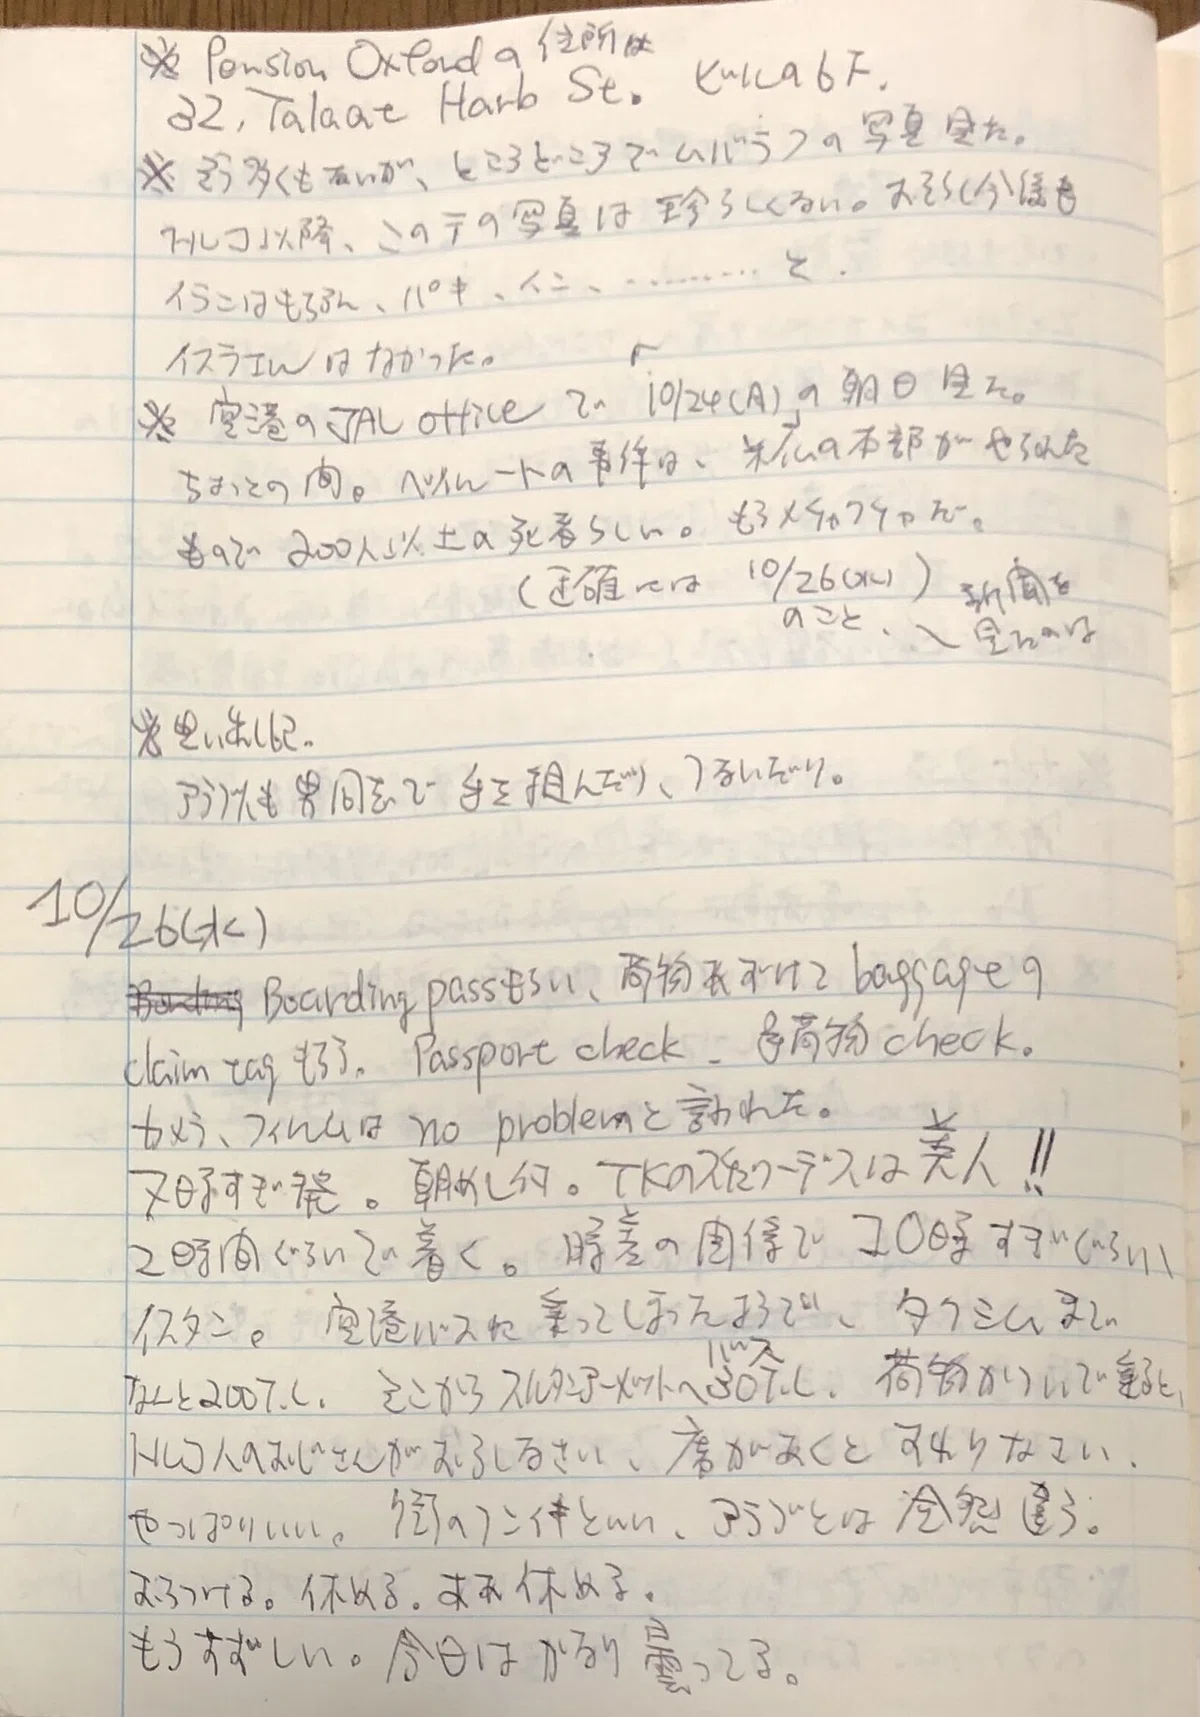 ※ Pension Oxfordの住所は
32, Talaat Harb St. ビルの6F.
※ そう多くもないが、ところどころでムバラクの写真見た。
トルコ以降、この手の写真は珍らしくない。おそらく今後も
イランはもちろん、パキ、イン、………… と.
イスラエルはなかった。
※ 空港のJAL officeで「10/24(月)」の朝日見た。
ちょっとの間。ベイルートの事件は、米仏の本部がやられた
もので200人以上の死者らしい。もうメチャクチャだ。
(正確には 10/26(水)
のこと、新聞を
見たのは
※思い出し記。
アラブ人も男同志で手を組んだり、つないだり。
10/26(水)
Boarding passもらい、荷物あずけてbaggageの
claim tagもらう。Passport check – 手荷物check.
カメラ、フィルムはno problemと言われた。
7時すぎ発。朝めし付。TKのスチュワーデスは美人!!
2時間ぐらいで着く。時差の関係で10時すぎぐらい、
イスタン。空港バスに乗ってしまったようで、タクシムまで
なんと200T.L. そこからスルタンアーメットへバス30T.L. 荷物かついで乗ると、
トルコ人のおじさんがおろしなさい、席があくとすわりなさい、
やっぱりいい。街のフンイキといい、アラブとは全然違う。
おちつける。休める。まあ休める。
もうすずしい。今日はかなり曇ってる。